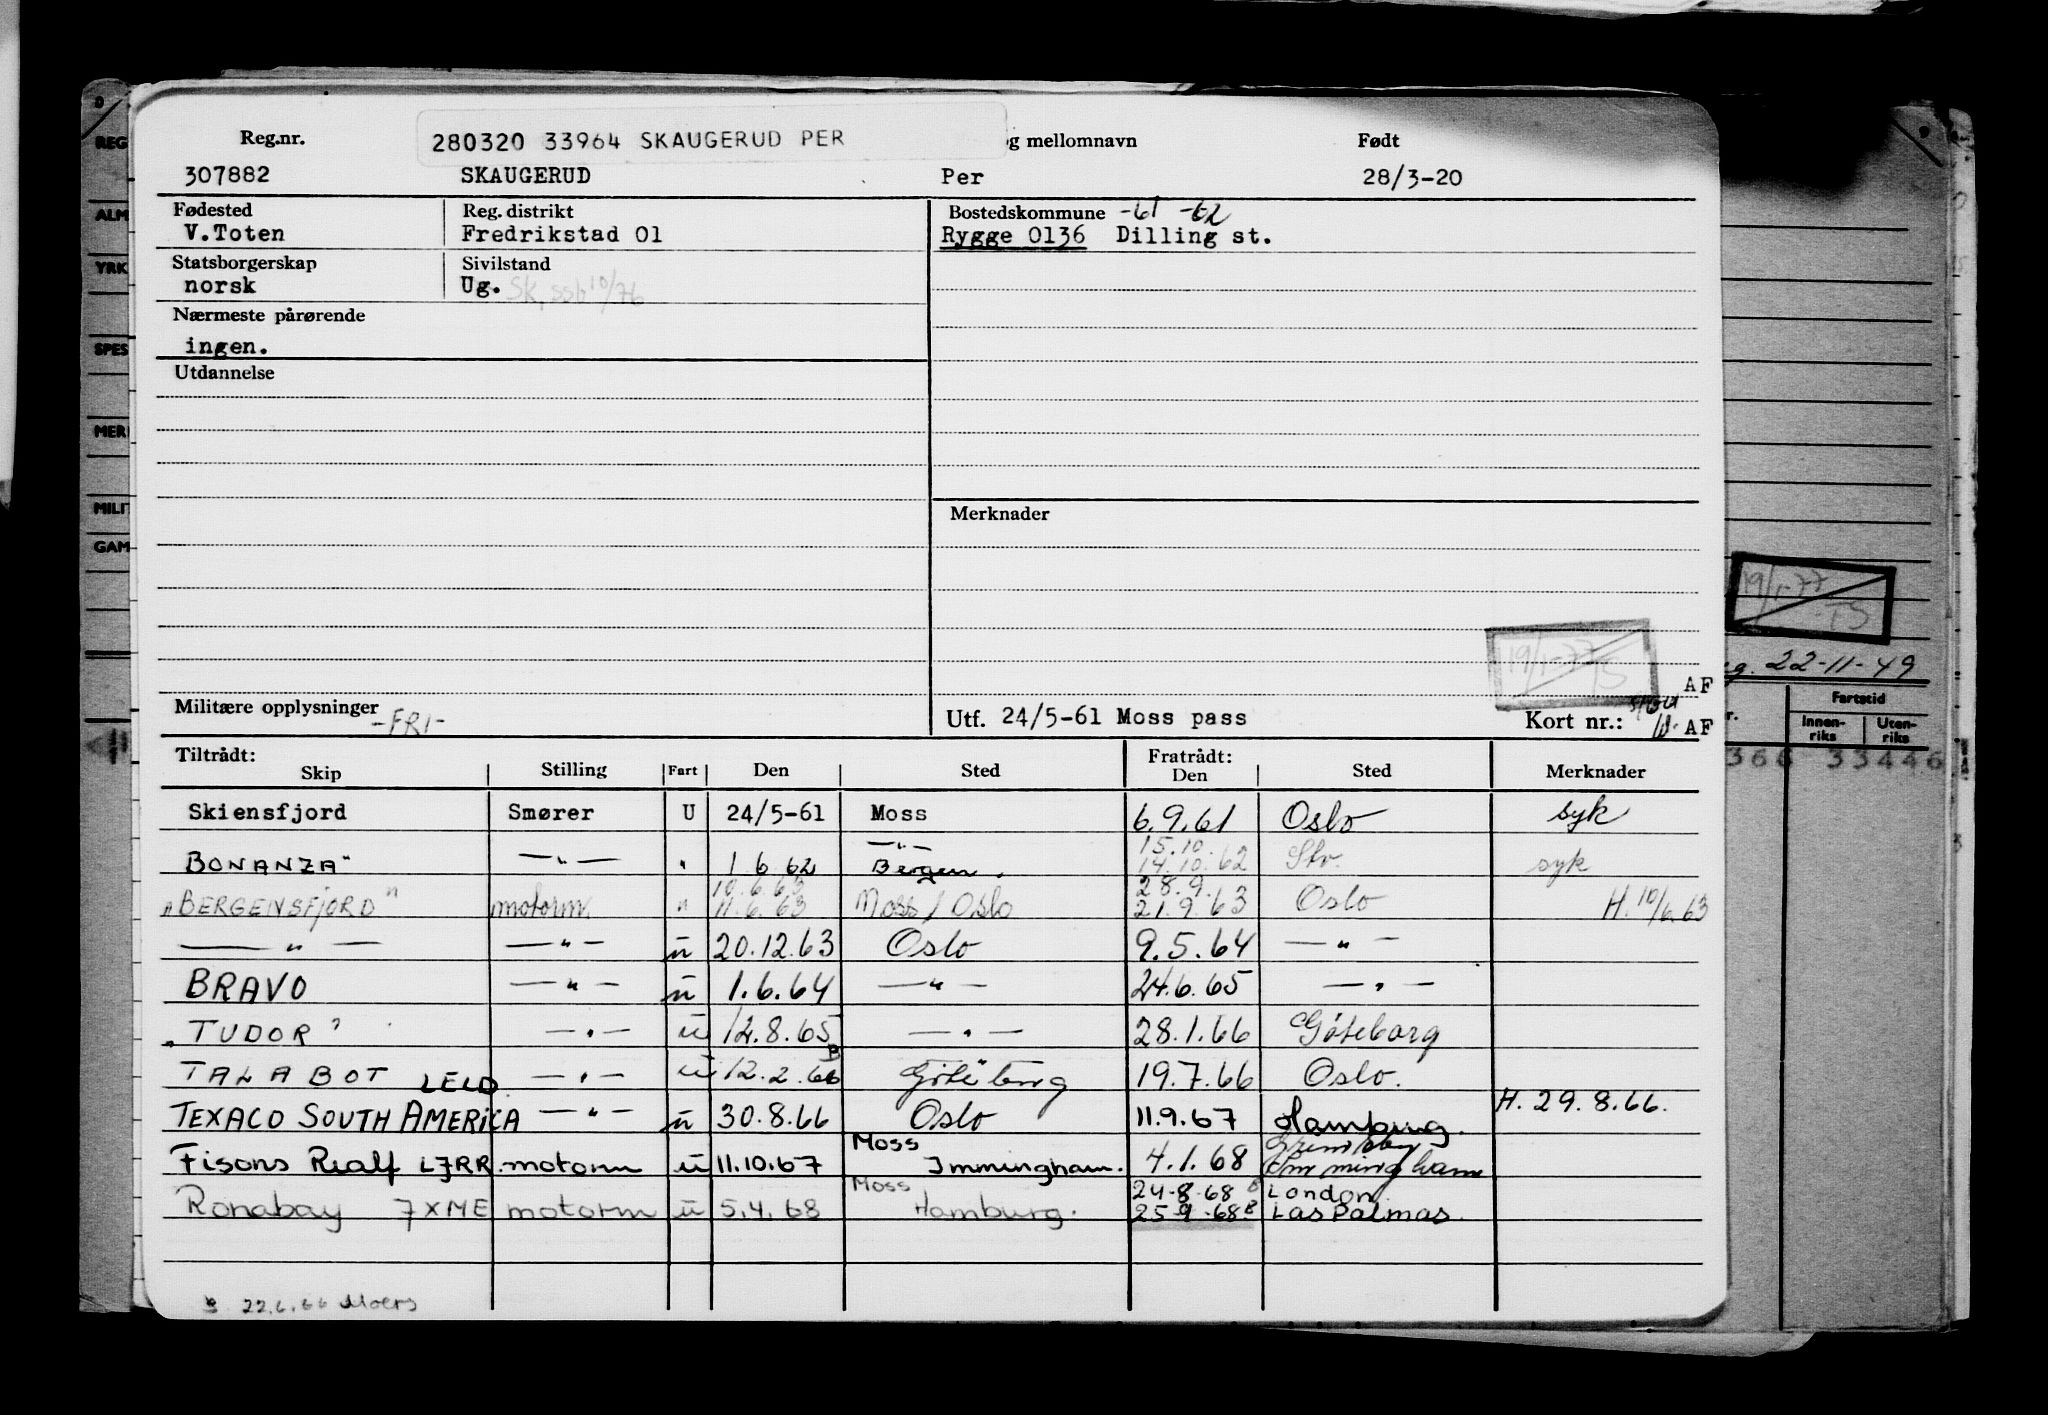 280320 33964 SKAUGERUD PER
Reg.nr. og mellomnavn Født
307882 SKAUGERUD Per 28/3-20
Fødested Reg. distrikt Bostedskommune -61 -62
V.Toten Fredrikstad 01 Rygge 0136 Dilling st.
Statsborgerskap Sivilstand
norsk Ug. Sk, ssb 10/76
Nærmeste pårørende
ingen.
Utdannelse
Merknader
19/1-77 TS
AF
Militære opplysninger -FRI- Utf. 24/5-61 Moss pass Kort nr.: AF
Tiltrådt: Fratrådt:
Skip Stilling Fart Den Sted Den Sted Merknader
Skiensfjord Smører U 24/5-61 Moss 6.9.61 Oslo syk
—"— 15.10.
BONANZA" —"— " 1.6.62 Bergen. 14.10.62 Stv. syk
10.6.63 28.9.
"BERGENSFJORD" motorm. " 11.6.63 Moss / Oslo 21.9.63 Oslo H. 10/6.63
—"— —"— u 20.12.63 Oslo 9.5.64 —"—
BRAVO —"— u 1.6.64 —"— 24.6.65 —"—
"TUDOR" —"— u 12.8.65 —"— 28.1.66 Göteborg
TALABOT LELD —"— u 12.2.66 B Göteborg 19.7.66 Oslo.
TEXACO SOUTH AMERICA —"— u 30.8.66 Oslo 11.9.67 Hamburg. H. 29.8.66.
Moss Grimsby
Fisons Rialf LJRR motorm u 11.10.67 Immingham. 4.1.68 Immingham
Moss 24.8.68 B London.
Ronabay 7XME motorm u 5.4.68 Hamburg. 25.9.68 B Las Palmas.
22.6.66 Moers
REG
ALM
YRK
SPES
MER
MILIT
GAM
19/1-77 TS
22-11-49
Fartstid
Innen-riks Uten-riks
366 33446